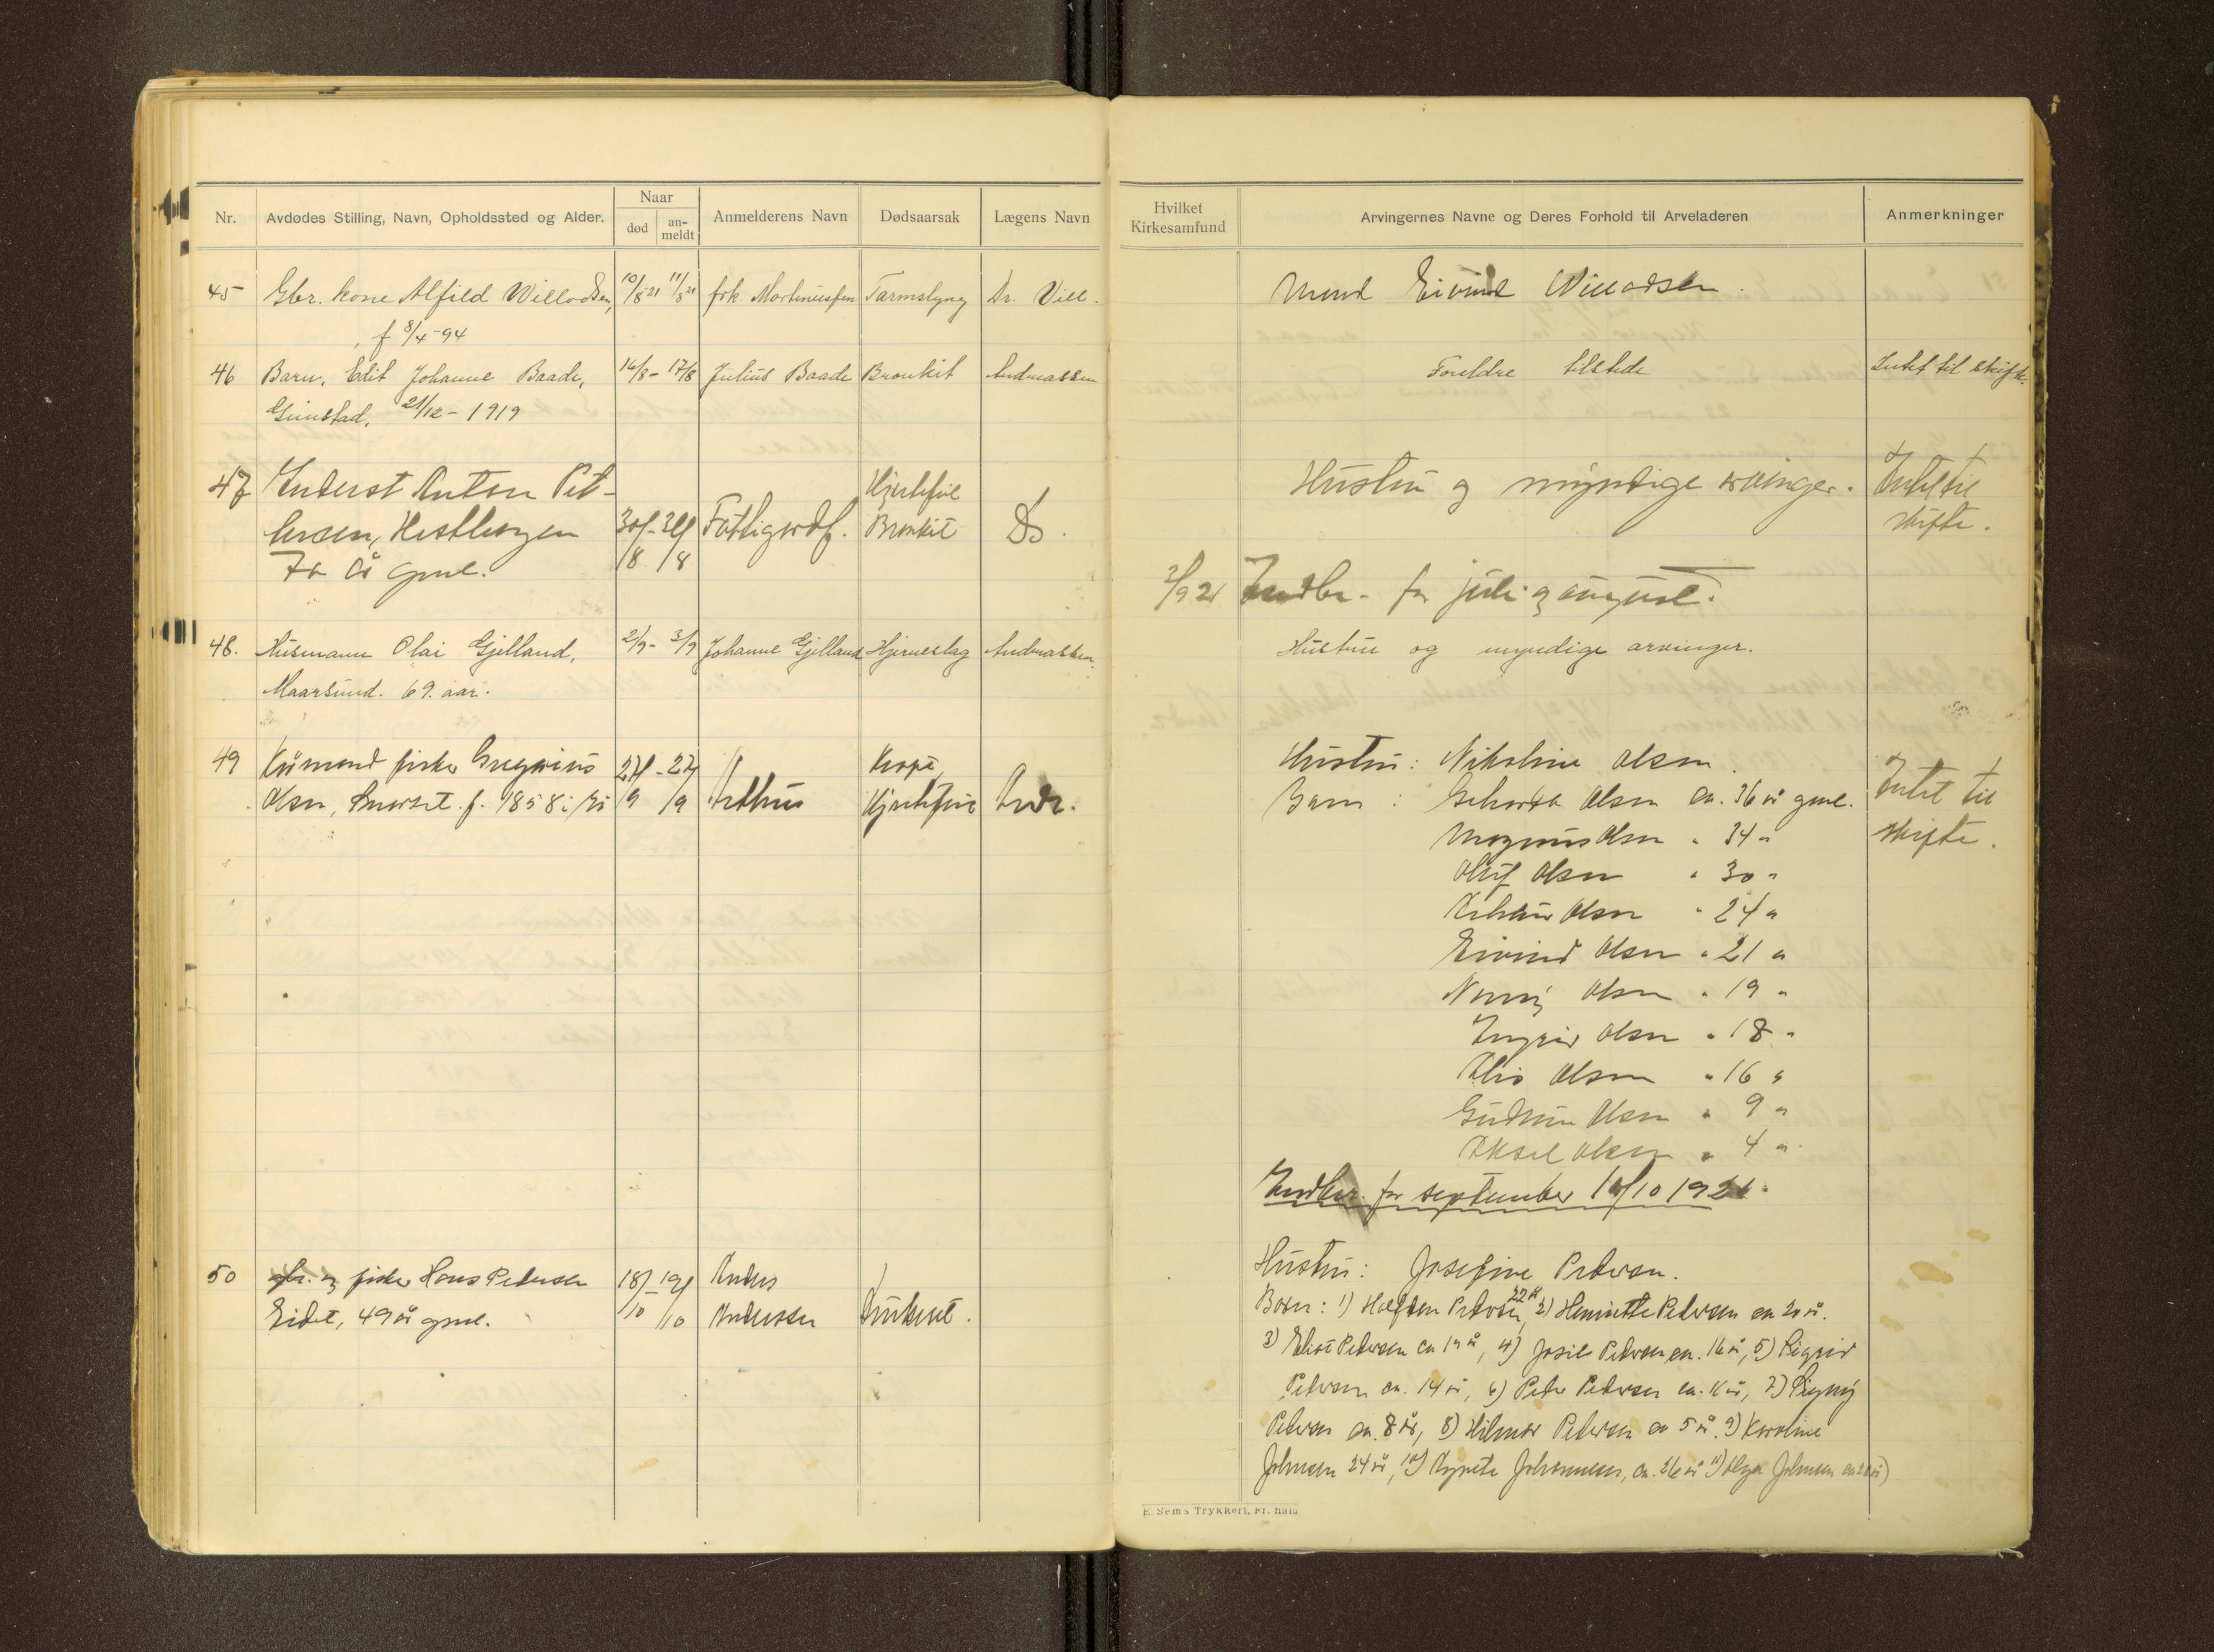 Nr.
Avdødes Stilling, Navn, Opholdssted og Alder.
Naar
død
an-
meldt
Anmelderens Navn
Dødsaarsak
Lægens Navn
Hvilket
Kirkesamfund
Arvingernes Navne og Deres Forhold til Arveladeren
Anmerkninger
45 Gbr. kone Alfild Willodsen, 10/8 21 11/8 21 frk. Martinussen Tarmslyng Dr. Vill.
f 8/4-94
Mand Eivind Willadsen.
46 Barn, Edit Johanne Baade, 16/8 - 17/8 Julius Baade Bronkit Andreassen
Grimstad, 21/12 - 1919
Foreldre tilstede
Intet til skifte.
47 Inderst Anton Pet-
tersen, Hestbergen
år gml.
30/8 - 31/8
Fattigordf.
Hjertefeil
Bronkit
Do.
Hustru og myndige arvinger.
Intet til
skifte.
2/9 21 Indbr. for juli og august.
48. Husmann Olai Gjelland, 2/9 - 3/9 Johanne Gjelland Hjerneslag Andreassen.
Maarsund. 69. aar.
Hustru og myndige arvinger.
49 Kårmand fisker Gregorius
Olsen, f. 1858
27/9 - 27/9
Hjertefeil
Andr.
Hustru: Nikoline Olsen.
Barn: Olsen ca. 36 år gml.
Magnus Olsen " 34 "
Oluf Olsen " 30 "
Olsen " 24 "
Eivind Olsen " 21 "
Olsen " 19 "
Ingrid Olsen " 18 "
Olsen " 16 "
Gudrun Olsen " 9 "
Aksel Olsen " 4 "
Intet til
skifte.
Indbr. for september 10/10 1921.
50 gbr. og fisker Hans Pedersen
Eidet, 49 år gml.
18/10 - 19/10
Anders
Andersen
Druknet.
Hustru: Josefine Pedersen.
Barn: 1) Halfdan Pedersen 22 år, 2) Henriette Pedersen ca 20 år.
3) Pedersen ca 19 år, 4) Pedersen ca. 16 år, 5) Sigrid
Pedersen ca. 14 år, 6) Peder Pedersen ca. 11 år, 7) Signy
Pedersen ca. 8 år, 8) Hilmar Pedersen ca 5 år. 9) Karoline
Johnsen 24 år, 10) Agnete Johannesen, ca. 26 år 11) Olga Johnsen ca
E. Sem's Trykkeri, Fr.hald